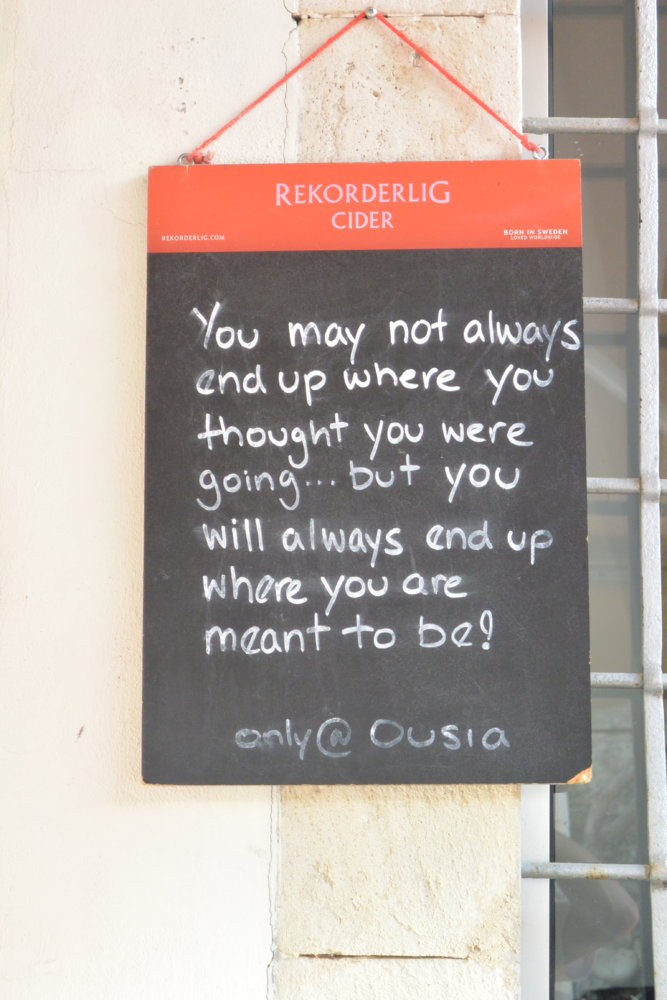 REKORDERLIG
CIDER
REKORDERLIG.COM
BORN IN SWEDEN
LOVED WORLDWIDE
You may not always
end up where you
thought you were
going... but you
will always end up
where you are
meant to be!
only@ Ousia